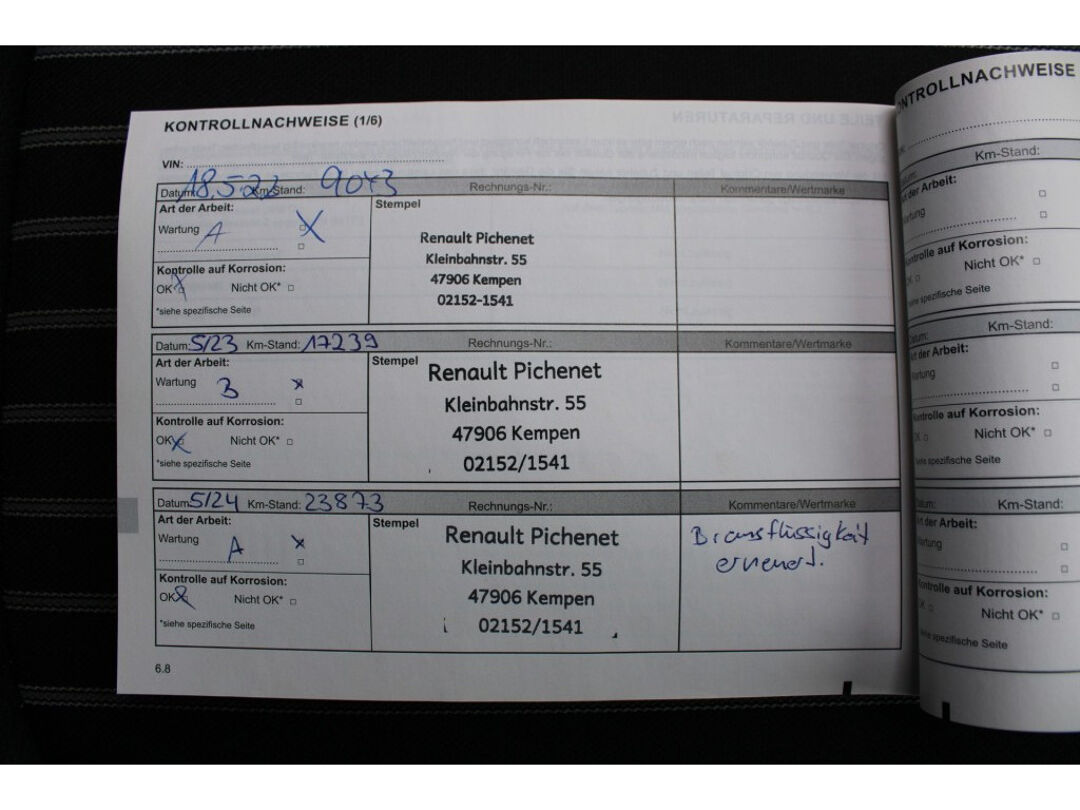 KONTROLLNACHWEISE (1/6)
VIN:
Datum: 18.5.22 Km-Stand: 9043 Rechnungs-Nr.: Kommentare/Wertmarke
Art der Arbeit: Stempel
Wartung A X
Renault Pichenet
Kleinbahnstr. 55
47906 Kempen
02152-1541
Kontrolle auf Korrosion:
OK X Nicht OK*
*siehe spezifische Seite
Datum: 5/23 Km-Stand: 17239 Rechnungs-Nr.: Kommentare/Wertmarke
Art der Arbeit: Stempel
Wartung B x
Renault Pichenet
Kleinbahnstr. 55
47906 Kempen
02152/1541
Kontrolle auf Korrosion:
OK x Nicht OK*
*siehe spezifische Seite
Datum: 5/24 Km-Stand: 23873 Rechnungs-Nr.: Kommentare/Wertmarke
Art der Arbeit: Stempel
Wartung A x
Renault Pichenet
Kleinbahnstr. 55
47906 Kempen
02152/1541
Bremsflüssigkeit
erneuert.
Kontrolle auf Korrosion:
OK x Nicht OK*
*siehe spezifische Seite
6.8
KONTROLLNACHWEISE
Km-Stand:
der Arbeit:
Kontrolle auf Korrosion:
Nicht OK*
siehe spezifische Seite
Km-Stand:
der Arbeit:
Kontrolle auf Korrosion:
Nicht OK*
siehe spezifische Seite
Km-Stand:
der Arbeit:
Kontrolle auf Korrosion:
Nicht OK*
siehe spezifische Seite